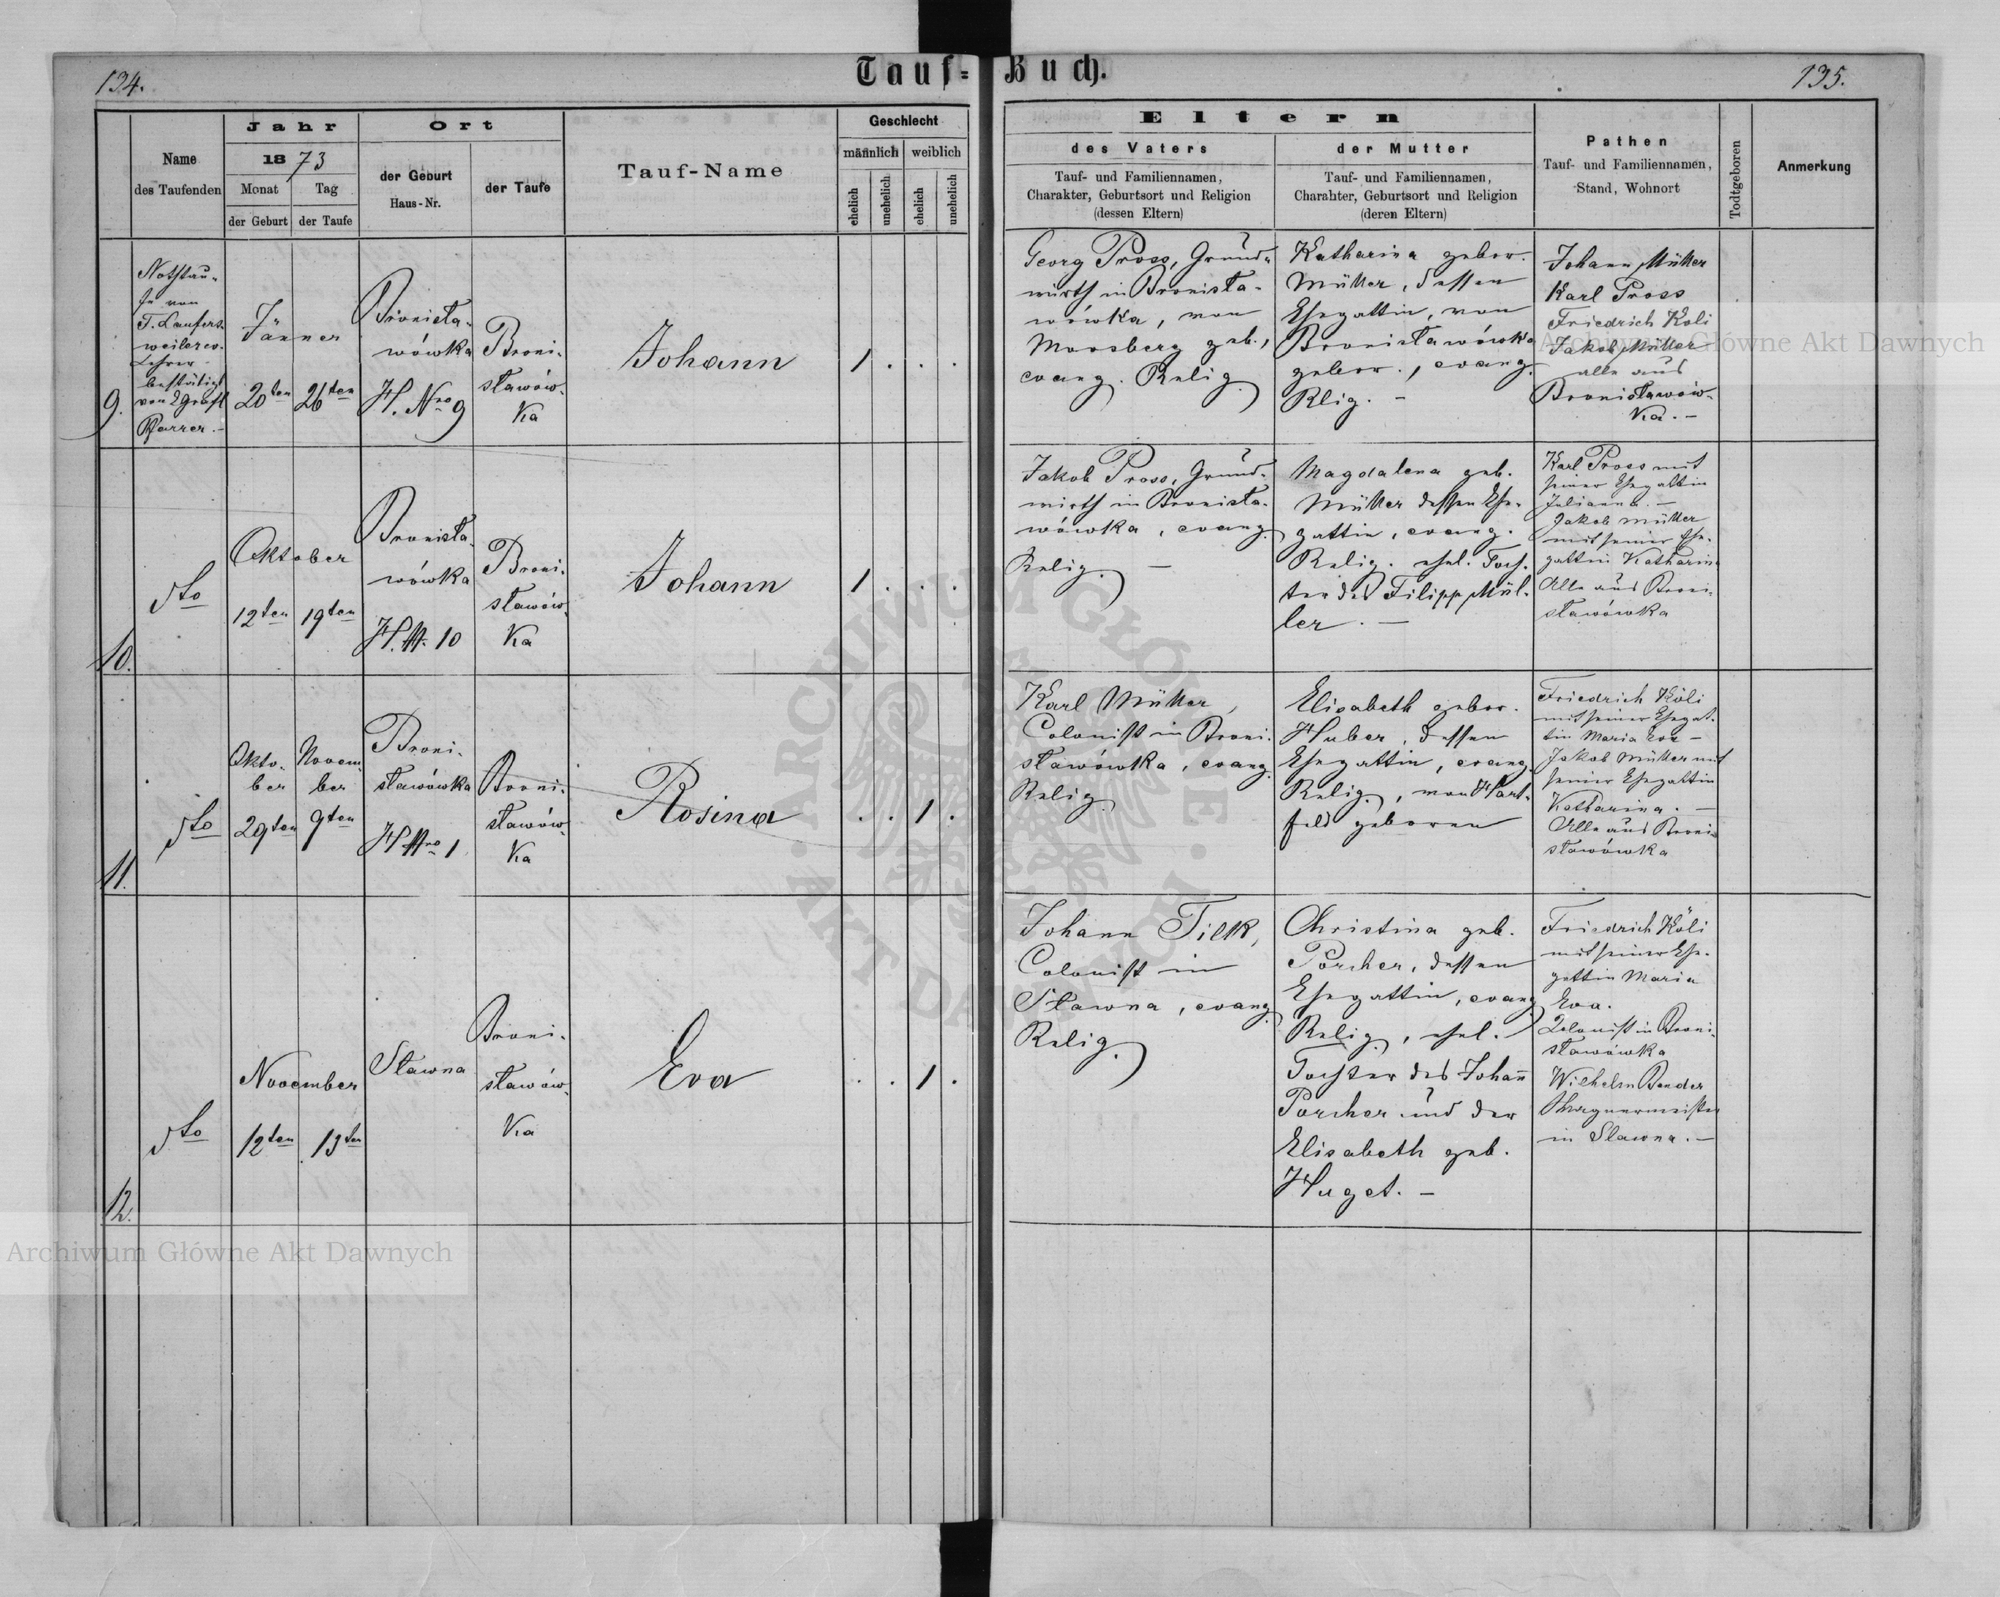 134.
Tauf=Buch.
135.
Name
des Taufenden
Jahr
18 73
Monat
Tag
der Geburt
der Taufe
Ort
der Geburt
Haus-Nr.
der Taufe
Tauf-Name
Geschlecht
männlich
weiblich
ehelich
unehelich
ehelich
unehelich
Eltern
des Vaters
Tauf- und Familiennamen,
Charakter, Geburtsort und Religion
(dessen Eltern)
der Mutter
Tauf- und Familiennamen,
Charakter, Geburtsort und Religion
(deren Eltern)
Pathen
Tauf- und Familiennamen,
Stand, Wohnort
Todtgeboren
Anmerkung
9.
Nothtau-
fe von
Lehrer
bestätigt
Pfarrer.-
Jänner
20ten
26ten
Bronisła-
wówka
H. Nro 9
Broni-
sławów-
ka
Johann
1 . . .
Georg Pross, Grund-
wirth in Bronisła-
wówka, von
Moosberg geb.,
evang. Relig.
Katharina gebor.
Müller, dessen
Ehegattin, von
Bronisławówka
gebor., evang.
Rlig. -
Johann Müller
Karl Pross
Friedrich Köli
Jakob Müller
alle aus
Bronisławów-
ka. -
10.
dto
Oktober
12ten
19ten
Bronisła-
wówka
H. N. 10
Broni-
sławów-
ka
Johann
1 . . .
Jakob Pross, Grund-
wirth in Bronisła-
wówka, evang.
Relig. -
Magdalena geb.
Müller dessen Ehe-
gattin, evang.
Relig. ehel. Toch-
ter des Filipp Mül-
ler. -
Karl Pross mit
seiner Ehegattin
Juliana. -
Jakob Müller
mit seiner Ehe-
gattin Katharina
Alle aus Broni-
sławówka
11.
dto
Okto-
ber
29ten
Novem-
ber
9ten
Broni-
sławówka
H Nro 1
Broni-
sławów-
ka
Rosina
. . 1 .
Karl Müller,
Colonist in Broni-
sławówka, evang.
Relig.
Elisabeth gebor.
Huber, dessen
Ehegattin, evang.
Relig., von Hart-
feld geboren
Friedrich Köli
mit seiner Ehegat-
tin Maria Eva -
Jakob Müller mit
seiner Ehegattin
Katharina. -
Alle aus Broni-
sławówka
12.
dto
November
12ten
13ten
Sławna
Broni-
sławów-
ka
Eva
. . 1 .
Johann Filk,
Colonist in
Sławna, evang.
Relig.
Christina geb.
Porcher, dessen
Ehegattin, evang.
Relig., ehel.
Tochter des Johann
Porcher und der
Elisabeth geb.
Huget. -
Friedrich Köli
mit seiner Ehe-
gattin Maria
Eva.
Colonist in Broni-
sławówka
Wilhelm Bender
in Slawna. -
Archiwum Główne Akt Dawnych
Archiwum Główne Akt Dawnych
ARCHIWUM GŁÓWNE
AKT DAWNYCH